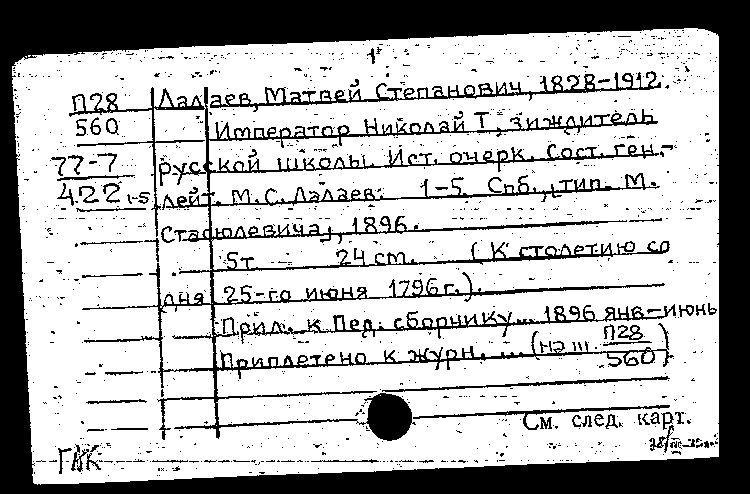 1
П28 Лалаев, Матвей Степанович, 1828-1912.
560 Император Николай I, зиждитель
77-7 русской школы. Ист. очерк. Сост. ген.-
422 1-5 лейт. М.С. Лалаев. 1-5. Спб., тип. М.
Стасюлевича, 1896.
5т 24 cm. (К столетию со
дня 25-го июня 1796 г.).
Прил. к Пед. сборнику... 1896 янв-июнь
Приплетено к журн. ... (на ш. П28
560)
См. след. карт.
ГАК